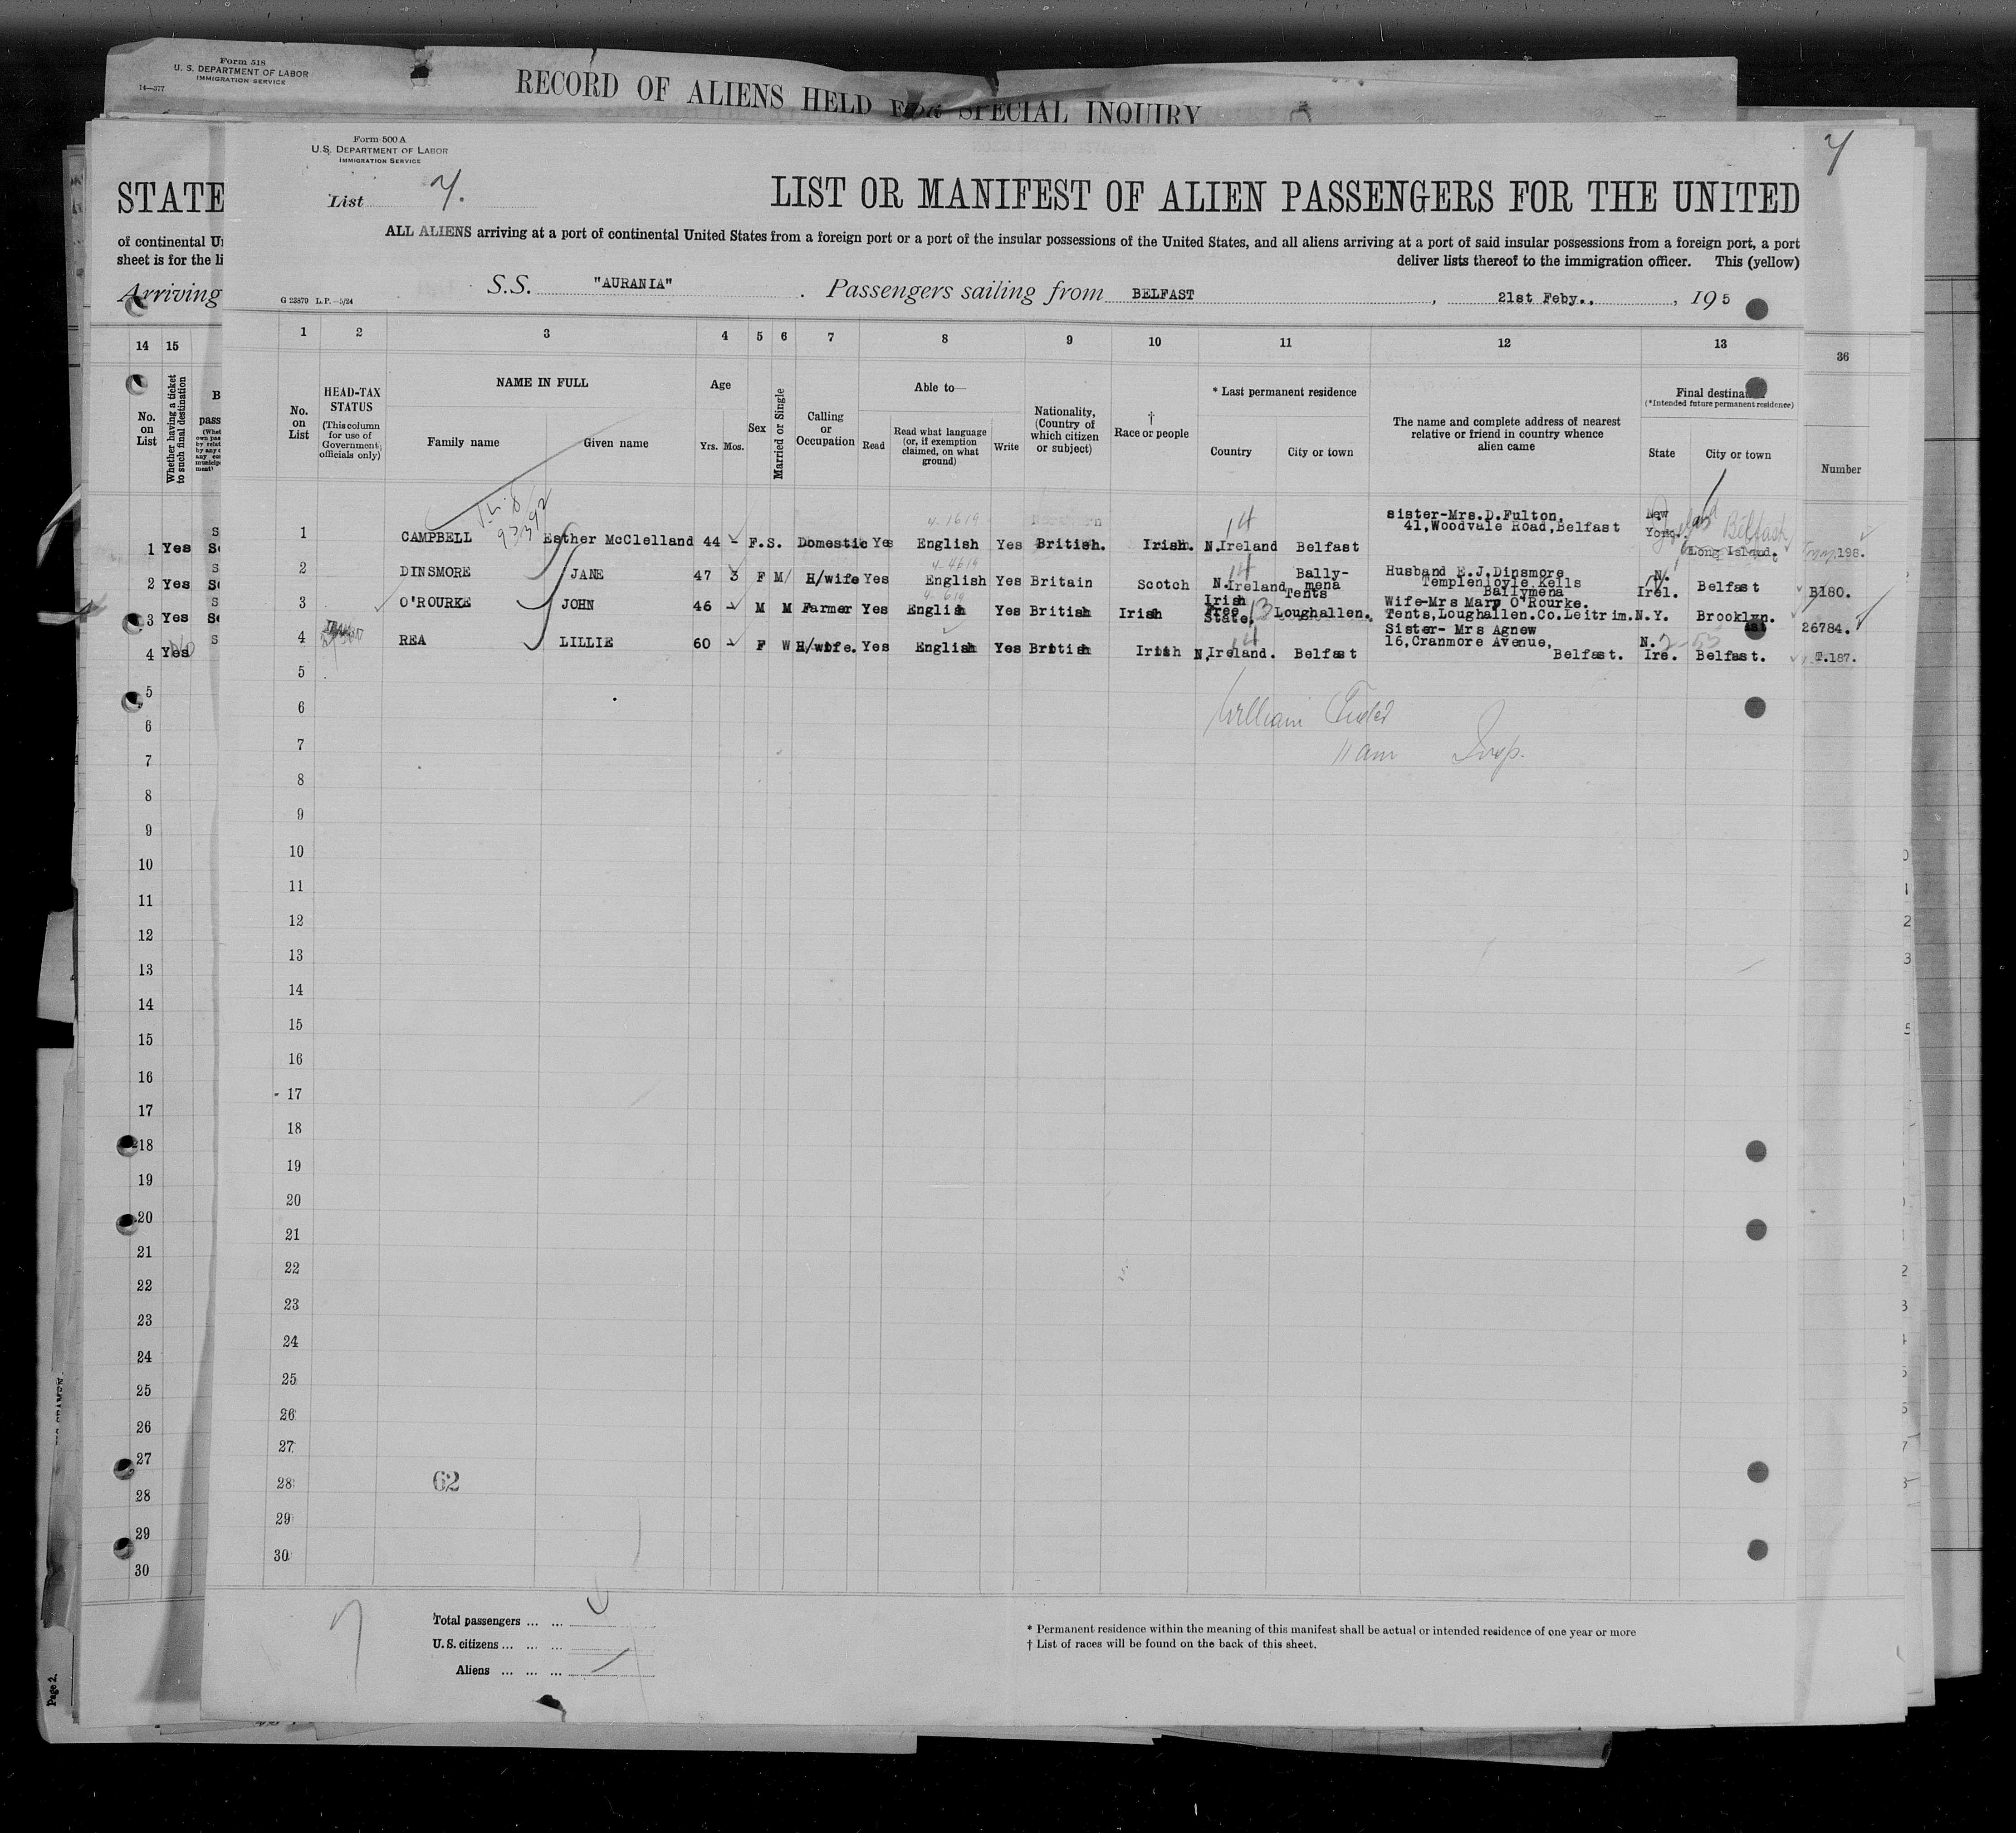 Form 518
U. S. DEPARTMENT OF LABOR
IMMIGRATION SERVICE
14—377
RECORD OF ALIENS HELD FOR SPECIAL INQUIRY
Form 500 A
U.S. DEPARTMENT OF LABOR
IMMIGRATION SERVICE
List 7.
7
STATE
LIST OR MANIFEST OF ALIEN PASSENGERS FOR THE UNITED
of continental U
sheet is for the li
ALL ALIENS arriving at a port of continental United States from a foreign port or a port of the insular possessions of the United States, and all aliens arriving at a port of said insular possessions from a foreign port, a port
deliver lists thereof to the immigration officer. This (yellow)
Arriving
G 23879 L.P.—5/24
S.S. "AURANIA" . Passengers sailing from BELFAST , 21st Feby.. , 195
14 15
1 2 3 4 5 6 7 8 9 10 11 12 13 36
No. on List
Whether having a ticket to such final destination
No. on List
HEAD-TAX STATUS
(This column for use of Government officials only)
NAME IN FULL
Family name Given name
Age
Yrs. Mos.
Sex
Married or Single
Calling or Occupation
Able to—
Read
Read what language (or, if exemption claimed, on what ground)
Write
Nationality, (Country of which citizen or subject)
† Race or people
* Last permanent residence
Country City or town
The name and complete address of nearest relative or friend in country whence alien came
Final destinat
(*Intended future permanent residence)
State City or town
Number
1 Yes
1 CAMPBELL Esther McClelland 44 - F.S. Domestic Yes English Yes British. Irish. N.Ireland Belfast
sister-Mrs.D.Fulton,
41,Woodvale Road,Belfast
New York. Long Island. Belfast 198.
4-1619
14
2 Yes
2 DINSMORE JANE 47 3 F M H/wife Yes English Yes Britain Scotch N.Ireland Bally-
mena
Husband E.J.Dinsmore
Templenioyle Kells
Ballymena
N. Irel. Belfast B180.
4-4619
14
3 Yes
3 O'ROURKE JOHN 46 - M M Farmer Yes English Yes British Irish Irish Free State, Tents Loughallen.
Wife-Mrs Mary O'Rourke.
Tents,Loughallen.Co.Leitrim. N.Y. Brooklyn. 26784.
4-619
13
4 Yes No
4 REA LILLIE 60 - F W H/wife. Yes English Yes British Irish N,Ireland. Belfast
Sister- Mrs Agnew
16,Cranmore Avenue,
Belfast.
N. Ire. Belfast. T.187.
14
5
6
7
8
9
10
11
12
13
14
15
16
17
18
19
20
21
22
23
24
25
26
27
28
29
30
5
6
William
7
11 am Insp.
8
9
10
11
12
13
14
15
16
17
18
19
20
21
22
23
24
25
26
27
28 62
29
30
7
Total passengers ... ...
U.S. citizens ... ... ...
Aliens ... ... ...
* Permanent residence within the meaning of this manifest shall be actual or intended residence of one year or more
† List of races will be found on the back of this sheet.
Page 2.